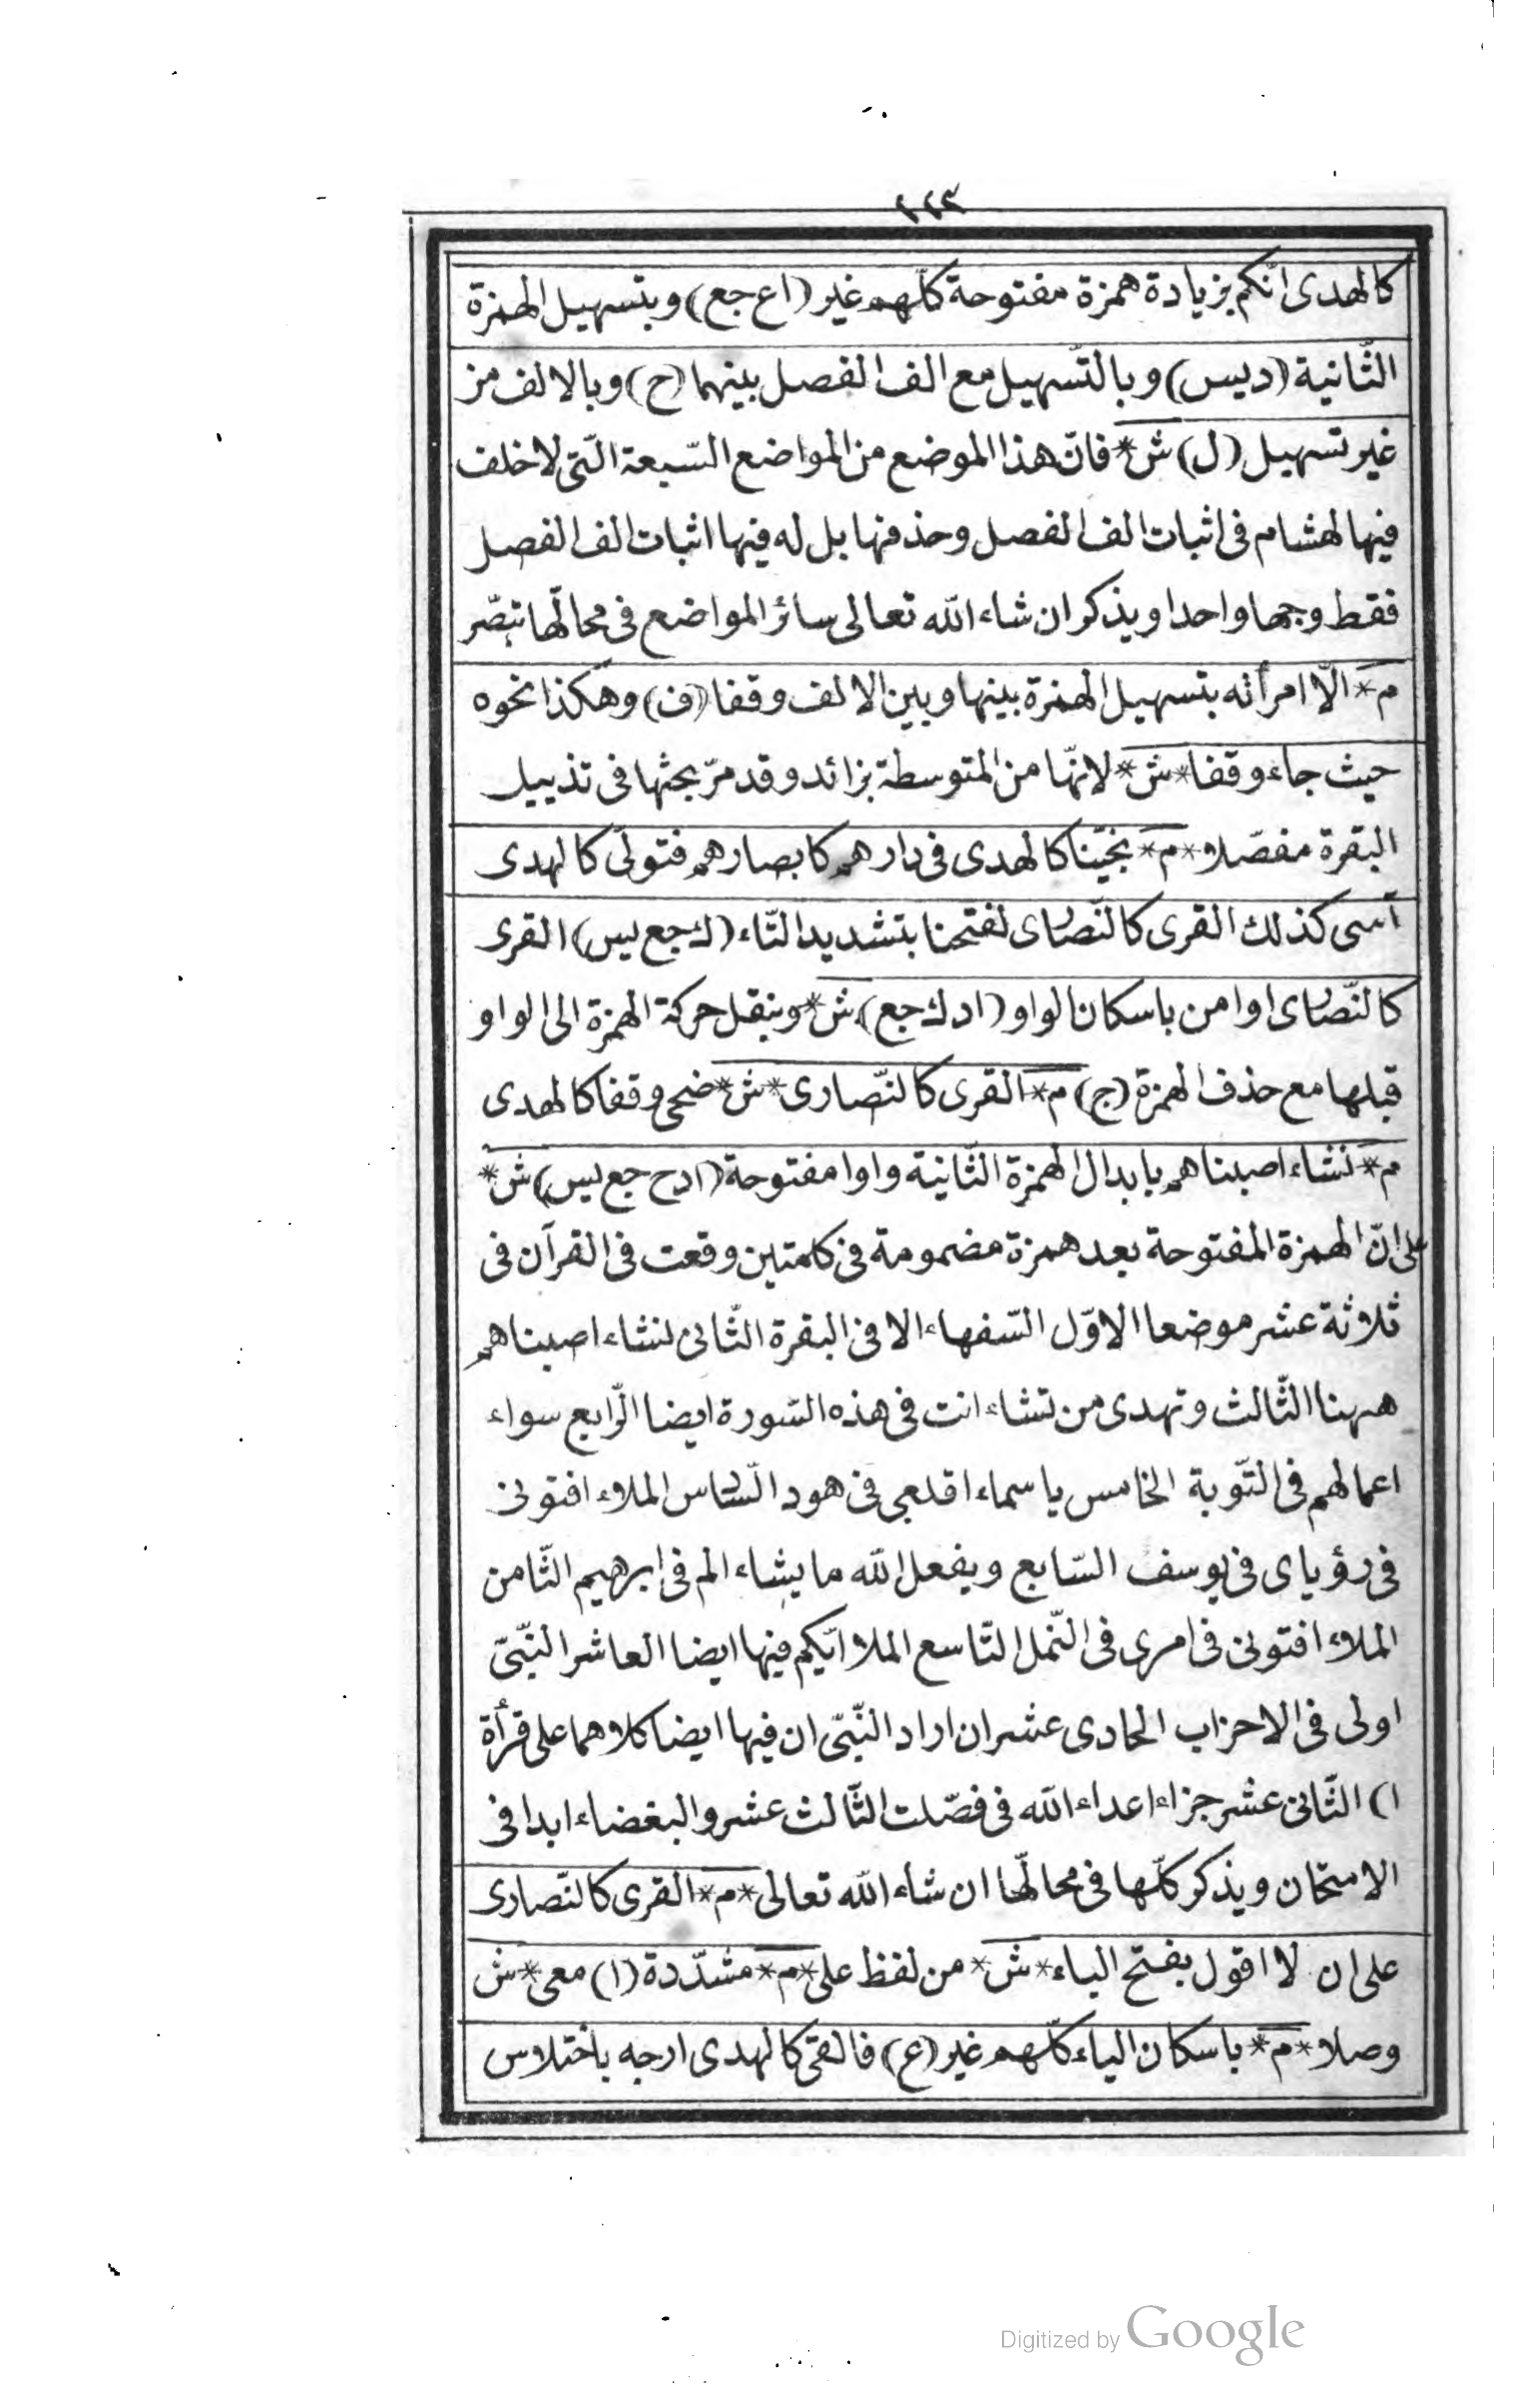 ٢٢٣
كالهدى ائنكم بزيادة همزة مفتوحة كلّهم غير (اع جع) وبتسهيل الهمزة
الثّانية (ديس) وبالتّسهيل مع الف الفصل بينهما (ح) وبالالف من
غير تسهيل (ل) ش* فانّ هذا الموضع من المواضع السّبعة الّتى لاخلف
فيها لهشام فى اثبات الف الفصل وحذفها بل له فيها اثبات الف الفصل
فقط وجها واحدا ويذكر ان شاء الله تعالى سائر المواضع فى محالّها تبصّر
م* الّا امرأته بتسهيل الهمزة بينها وبين الالف وقفا (ف) وهكذا نحوه
حيث جاء وقفا *ش* لانّها من المتوسطة بزائد وقد مرّ بحثها فى تذييل
البقرة مفصّلا *م* نجّينا كالهدى فى دارهم كابصارهم فتولّى كالهدى
آسى كذلك القرى كالنّصارى لفتحنا بتشديد التّاء (ك جع يس) القرى
كالنّصارى اوامن باسكان الواو (ادك جع) ش* وبنقل حركة الهمزة الى الواو
قبلها مع حذف الهمزة (ج) م* القرى كالنّصارى *ش* ضحى وقفا كالهدى
م* نشاء اصبناهم بابدال الهمزة الثّانية واوا مفتوحة (ادح جع يس) ش*
على انّ الهمزة المفتوحة بعد همزة مضمومة فى كلمتين وقعت فى القرآن فى
ثلاثة عشر موضعا الاوّل السّفهاء الا فى البقرة الثّانى لنشاء اصبناهم
ههنا الثّالث وتهدى من تشاء انت فى هذه السّورة ايضا الرّابع سواء
اعمالهم فى التّوبة الخامس ياسماء اقلعى فى هود السّادس الملاء افتونى
فى رؤياى فى يوسف السّابع ويفعل الله ما يشاء الم فى ابرهيم الثّامن
الملاء افتونى فى امرى فى النّمل التّاسع الملا ايّكم فيها ايضا العاشر النّبىّ
اولى فى الاحزاب الحادى عشر ان اراد النّبىّ ان فيها ايضا كلاهما على قرأة
ا) الثّانى عشر جزاء اعداء الله فى فصّلت الثّالث عشر والبغضاء ابدا فى
الامتحان ويذكر كلّها فى محالّها ان شاء الله تعالى *م* القرى كالنّصارى
على ان لا اقول بفتح الياء *ش* من لفظ على *م* مشدّدة (ا) معى *ش
وصلا *م* باسكان الياء كلّهم غير (ع) فالقى كالهدى ارجه باختلاس
Digitized by Google